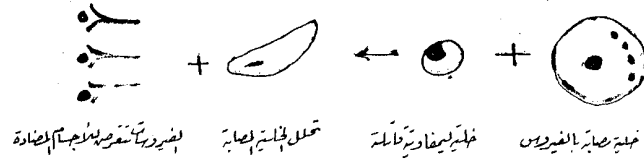 خلية مصابة بالفيروس
خلية ليمفاوية قاتلة
تحلل الخلية المصابة
الفيروسات تتعرض للأجسام المضادة